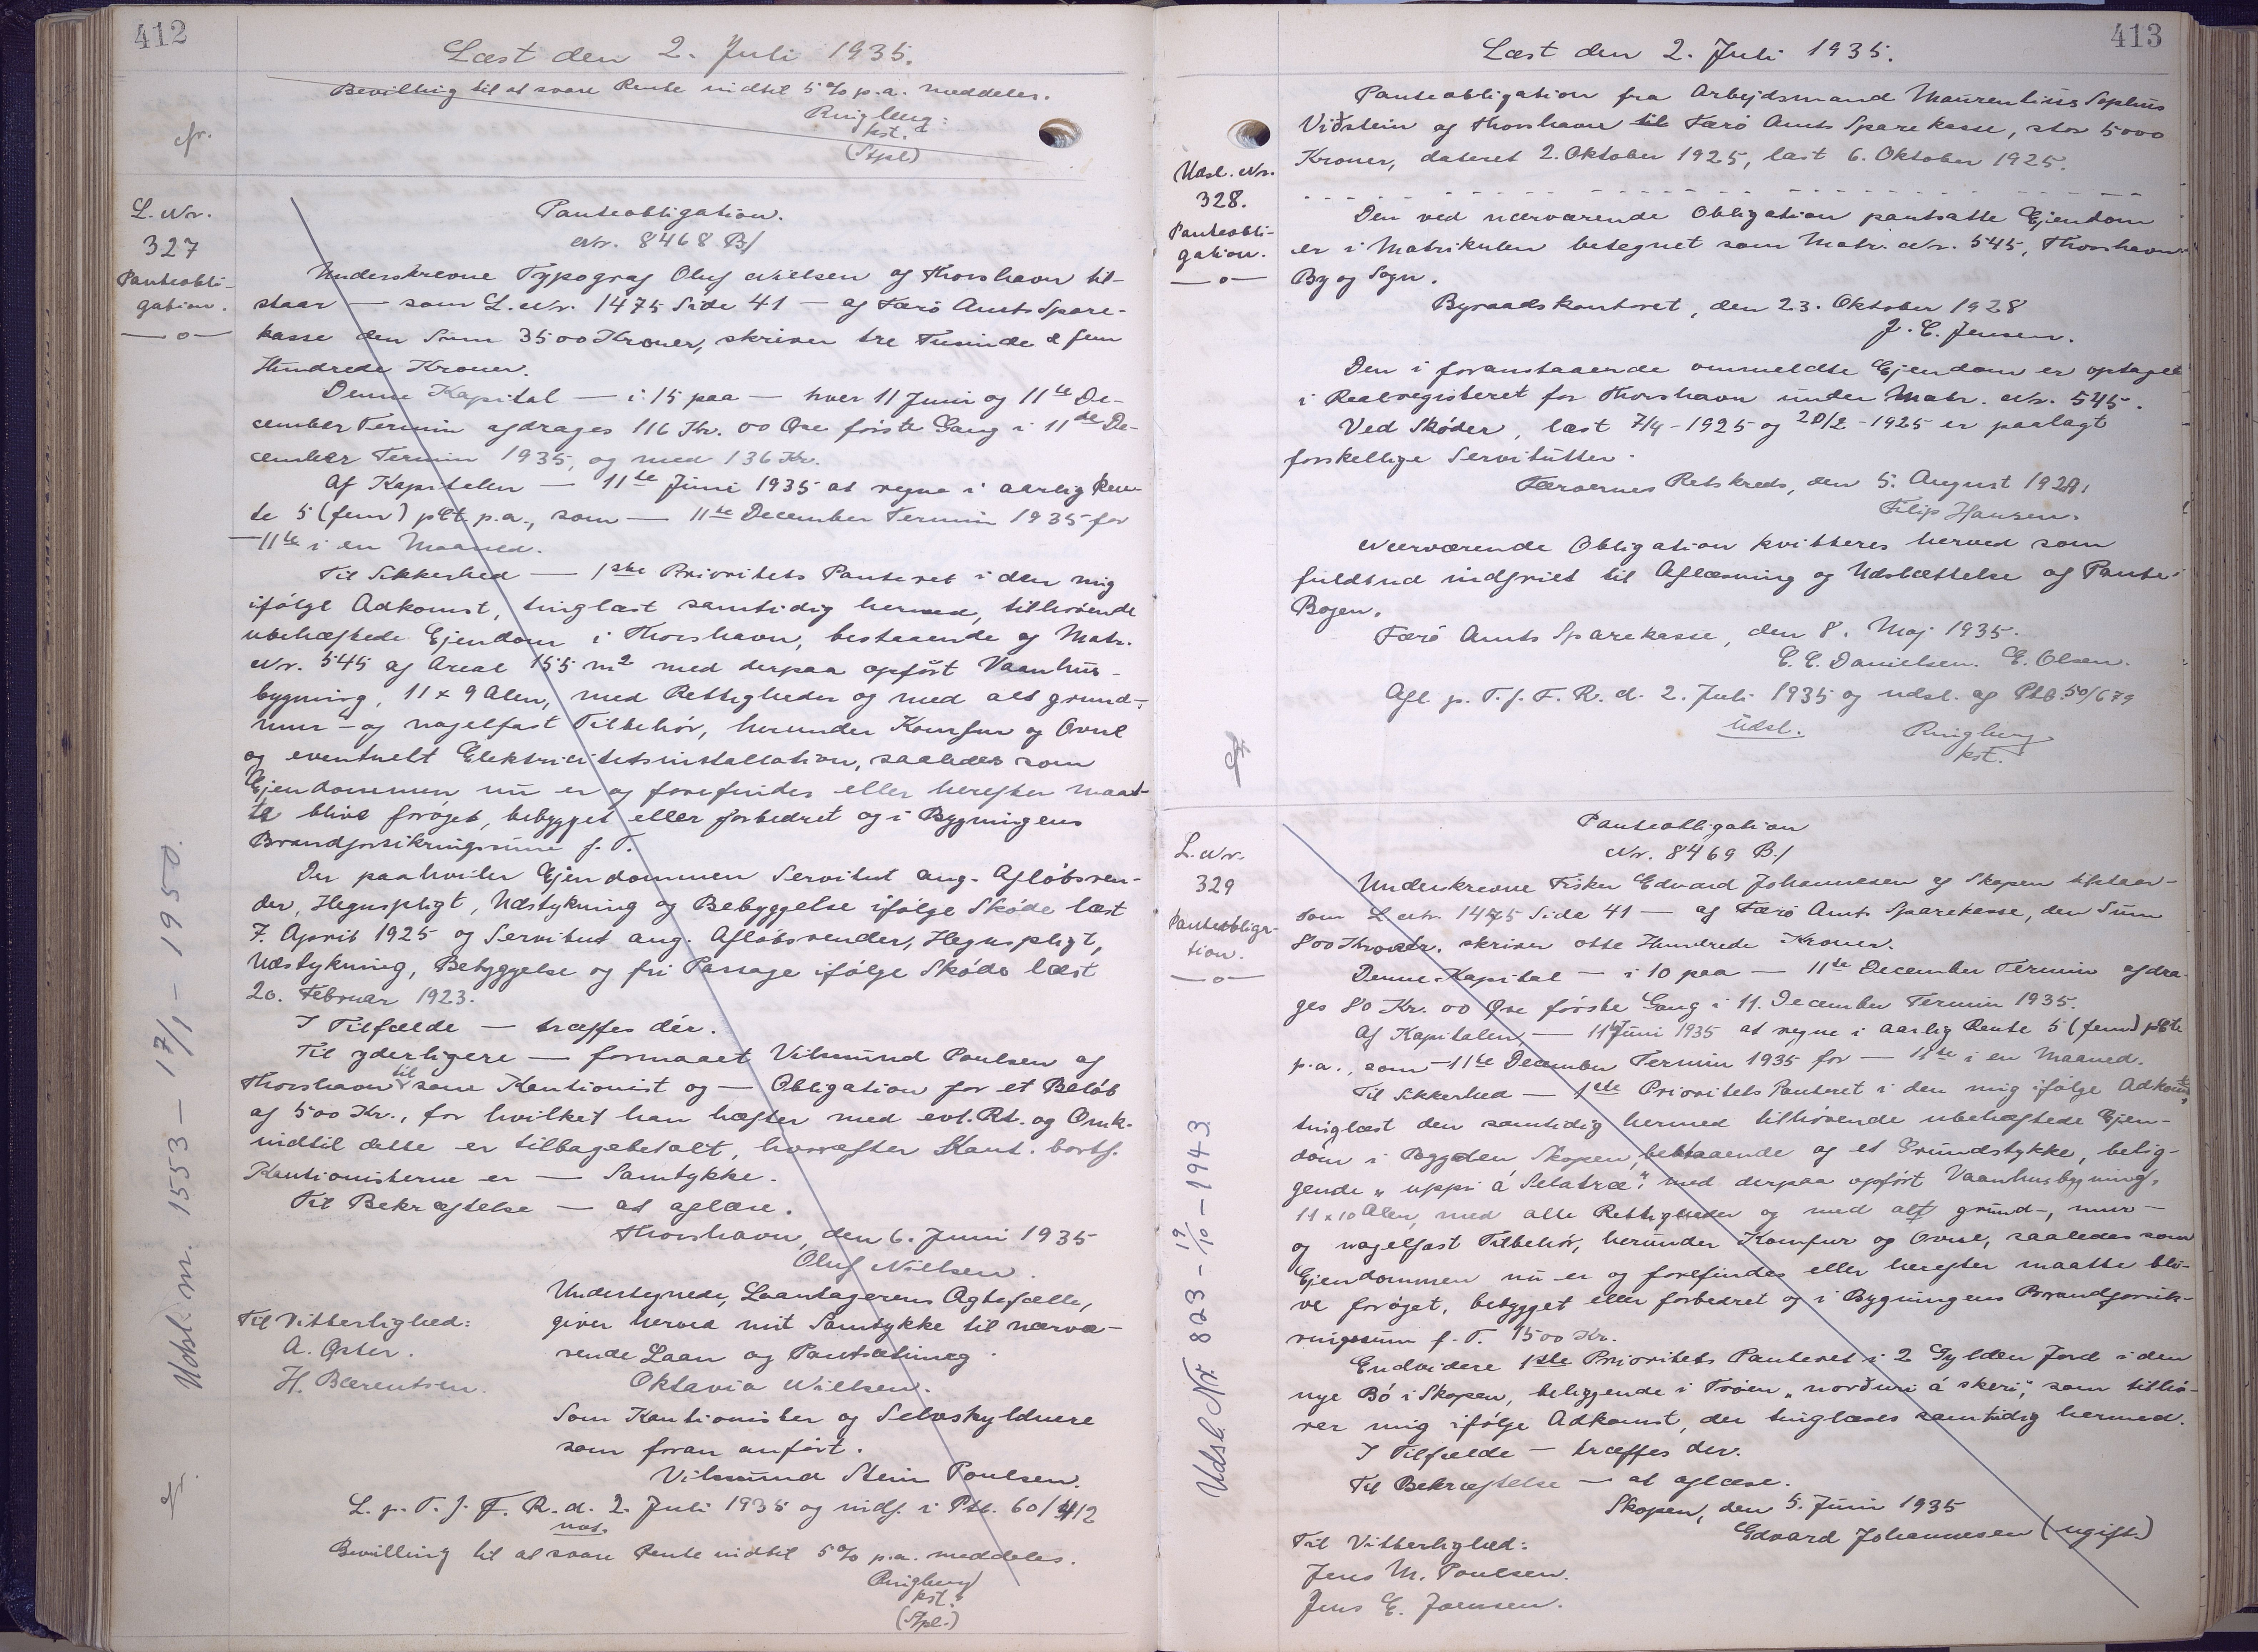 412
Læst den 2. Juli 1935.
Bevilling til at svare Rente indtil 5% p.a. meddeles.
Ringberg
kst.
(Stpl)
cfr.
L. Nr.
327
Panteobli-
gation.
—o—
Panteobligation.
Nr. 8468 B/
Underskrevne Typograf Oluf Nielsen af Thorshavn til-
staar — som L. Nr. 1475 Side 41 — af Færø Amts Spare-
kasse den Sum 3500 Kroner, skriver tre Tusinde & fem
Hundrede Kroner.
Denne Kapital — i 15 paa — hver 11 Juni og 11te De-
cember Termin afdrages 116 Kr. 00 Øre første Gang i 11de De-
cember Termin 1935, og med 136 Kr.
Af Kapitalen — 11te Juni 1935 at regne i aarlig Ren-
te 5 (fem) pCt. p.a., som — 11te December Termin 1935 for
— 11te i en Maaned.
Til Sikkerhed — 1ste Prioritets Panteret i den mig
ifølge Adkomst, tinglæst samtidig hermed, tilhørende
ubehæftede Ejendom i Thorshavn, bestaaende af Matr.
Nr. 545 af Areal 155 m2 med derpaa opført Vaanhus-
bygning, 11 x 9 Alen, med Rettigheder og med alt grund-,
mur- og nagelfast Tilbehør, herunder Komfur og Ovne
og eventuelt Elektricitetsinstallation, saaledes som
Ejendommen nu er og forefindes eller herefter maat-
te blive forøget, bebygget eller forbedret og i Bygningens
Brandforsikringssum f. T.
Der paahviler Ejendommen Servitut ang. Afløbsren-
der, Hegnspligt, Udstykning og Bebyggelse ifølge Skøde læst
7. April 1925 og Servitut ang. Afløbsrender, Hegnspligt,
Udstykning, Bebyggelse og fri Passage ifølge Skøde læst
20. Februar 1923.
I Tilfælde — træffes dér.
Til yderligere — formaaet Vilmund Poulsen af
Thorshavn til som Kautionist og — Obligation for et Beløb
af 500 Kr., for hvilket han hæfter med evt. Rt. og Omk.
indtil dette er tilbagebetalt, hvorefter Kaut. bortf.
Kautionisterne er — Samtykke.
Til Bekræftelse — at aflæse.
Thorshavn, den 6. Juni 1935
Oluf Nielsen.
Undertegnede, Laantagerens Ægtefælle,
giver herved mit Samtykke til nærvæ-
rende Laan og Pantsætning.
Oktavia Nielsen.
Til Vitterlighed:
A. Øster.
H. Bærentsen.
Som Kautionister og Selvskyldnere
som foran anført.
Vilmund Stein Poulsen.
L. p. T. f. F. R. d. 2. Juli 1935 og indf. i Ptb. 60/412
Bevilling til at svare Rente indtil 5% p.a. meddeles.
Ringberg
kst.
(Stpl.)
Udsl. nr. 1553 — 17/1 - 1950.
cfr.
413
Læst den 2. Juli 1935.
Udsl. Nr.
328.
Panteobli-
gation.
—o—
Panteobligation fra Arbejdsmand Maurentius Sophus
Viðstein af Thorshavn til Færø Amts Sparekasse, stor 5000
Kroner, dateret 2. Oktober 1925, læst 6. Oktober 1925.
Den ved nærværende Obligation pantsatte Ejendom
er i Matrikulen betegnet som Matr. Nr. 545, Thorshavn
By og Sogn.
Byraadskontoret, den 23. Oktober 1928
J. C. Jensen.
Den i foranstaaende ommeldte Ejendom er optaget
i Realregisteret for Thorshavn under Matr. Nr. 545.
Ved Skøder, læst 7/4 - 1925 og 20/2 - 1925 er paalagt
forskellige Servitutter.
Færøernes Retskreds, den 5. August
Filip Hansen.
Nærværende Obligation kvitteres herved som
fuldtud indfriet til Aflæsning og Udslættelse af Pante-
Bogen.
Færø Amts Sparekasse, den 8. Maj 1935.
C. C. Danielsen. E. Olsen.
Afl. p. T. f. F. R. d. 2. Juli 1935 og udsl. af Ptb. 50/679
udsl.
Ringberg
kst.
cfr.
L. Nr.
329
Panteobliga-
tion.
—o—
Panteobligation
Nr. 8469 B./
Underskrevne Fisker Edvard Johannesen af Skopen tilstaar —
som L Nr. 1475 Side 41 — af Færø Amts Sparekasse, den Sum
800 Kroner, skriver otte Hundrede Kroner.
Denne Kapital — i 10 paa — 11te December Termin afdra-
ges 80 Kr. 00 Øre første Gang i 11. December Termin 1935.
Af Kapitalen — 11te Juni 1935 at regne i aarlig Rente 5 (fem) pCt.
p.a., som — 11te December Termin 1935 for — 11te i en Maaned.
Til Sikkerhed — 1ste Prioritets Panteret i den mig ifølge Adkomst,
tinglæst den samtidig hermed tilhørende ubehæftede Ejen-
dom i Bygden Skopen, bestaaende af et Grundstykke, belig-
gende "uppi á Selatræ", med derpaa opført Vaanhusbygning,
11 x 10 Alen, med alle Rettigheder og med alt grund-, mur-
og nagelfast Tilbehør, herunder Komfur og Ovne, saaledes som
Ejendommen nu er og forefindes eller herefter maatte bli-
ve forøget, bebygget eller forbedret og i Bygningens Brandforsik-
ringssum f. T. 1500 Kr.
Endvidere 1ste Prioritets Panteret i 2 Gylden Jord i den
nye Bó i Skopen, beliggende i Trøen "norðuri á skeri", som tilhø-
rer mig ifølge Adkomst, der tinglæses samtidig hermed.
I Tilfælde — træffes der.
Til Bekræftelse — at aflæse.
Skopen, den 5. Juni 1935
Edvard Johannesen (ugift)
Til Vitterlighed:
Jens M. Poulsen.
Jens E. Joensen.
Udsl. Nr. 823 - 19/10 - 1943